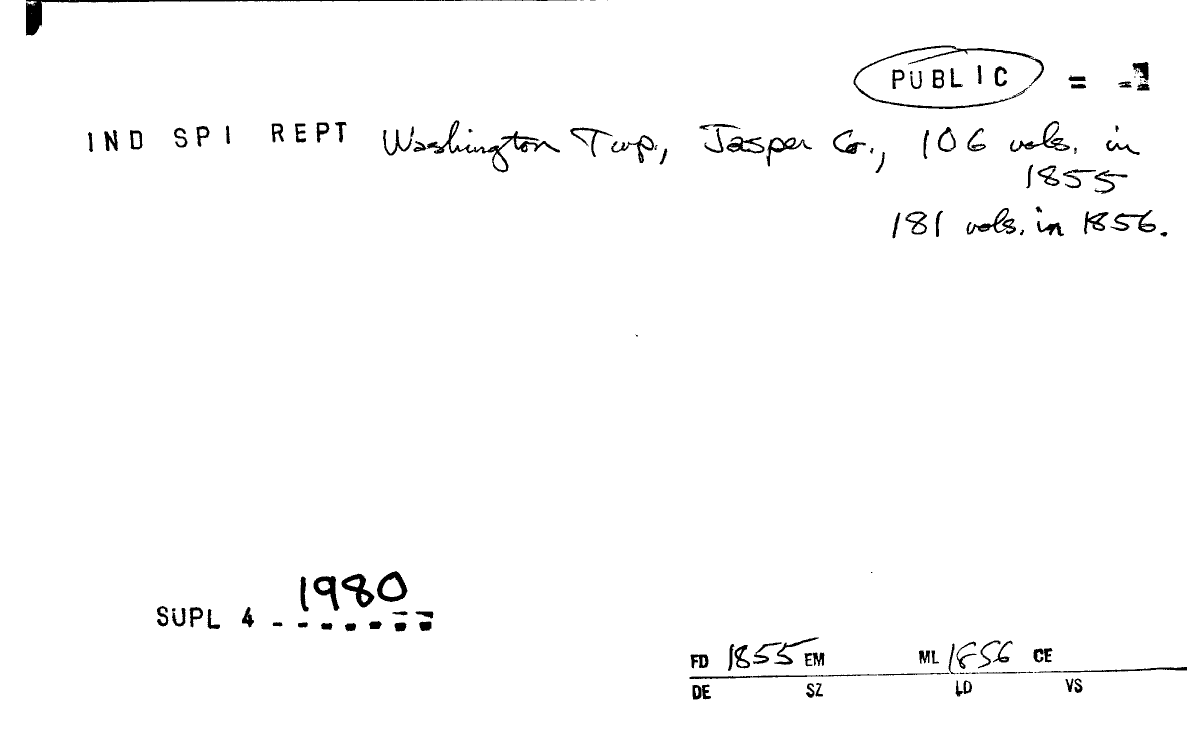 PUBLIC =
IND SPI REPT Washington Twp., Jasper Co., 106 vols. in
1855
181 vols. in 1856.
1980
SUPL 4
FD 1855 EM ML 1856 CE
DE SZ LD VS